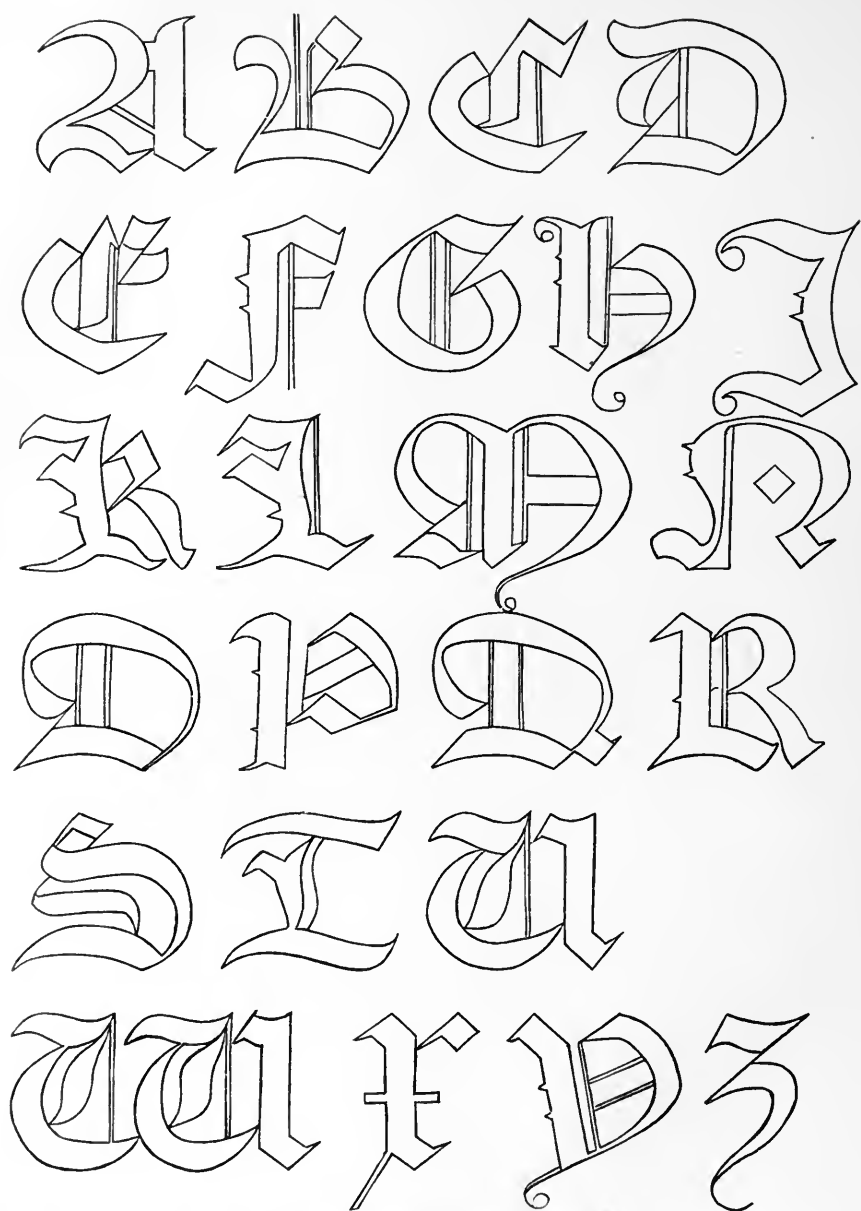 A B C D
E F G H J
K L M N
O P Q R
S T U
W X Y Z